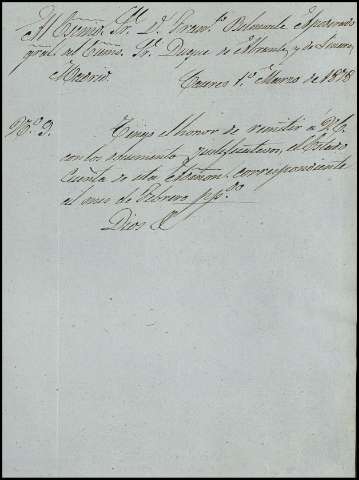 Al Escmo. Sr. D. Fran.co Belmonte Apoderado
gral. del Escmo. Sr. Duque de Abrantes y de Linares
Madrid.
Caceres 1.o Marzo de 1878
N.o 9.
Tengo el honor de remitir a V.E.
con los documentos justificativos, el Estado
Cuenta de esta Admon. correspondiente
al mes de Febrero pp.do
Dios &